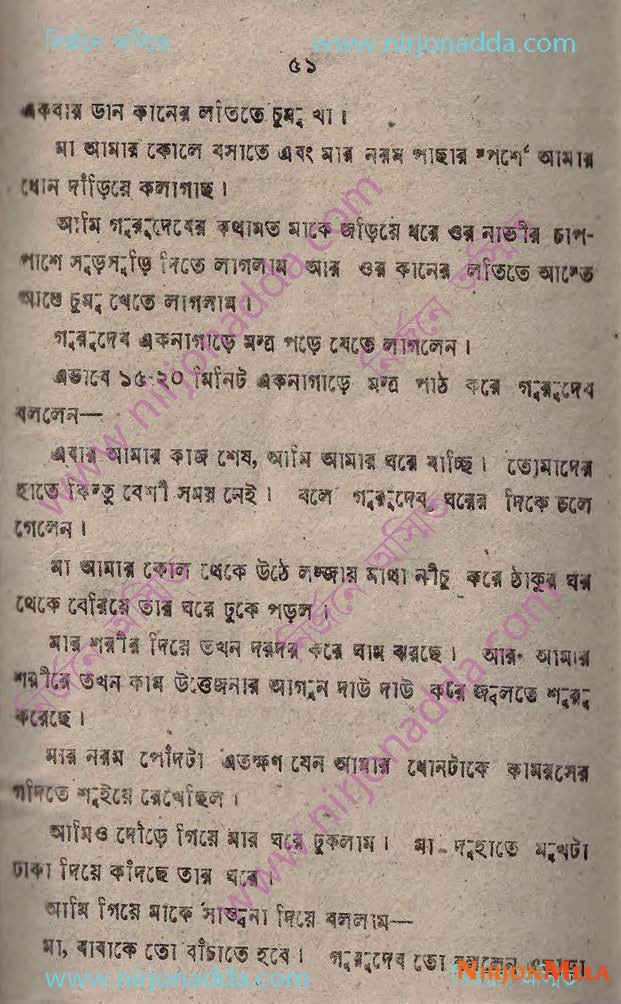 নির্জনে অস্মিত www.nirjonadda.com
৫১
একবার ডান কানের লতিতে চুমু খা।
মা আমার কোলে বসাতে এবং মার নরম পাছার স্পর্শে আমার
ধোন দাঁড়িয়ে কলাগাছ।
আমি গুরুদেবের কথামত মাকে জড়িয়ে ধরে ওর নাভীর চাপ-
পাশে সুড়সুড়ি দিতে লাগলাম আর ওর কানের লতিতে আস্তে
আস্তে চুমু খেতে লাগলাম।
গুরুদেব একনাগাড়ে মন্ত্র পড়ে যেতে লাগলেন।
এভাবে ১৫-২০ মিনিট একনাগাড়ে মন্ত্র পাঠ করে গুরুদেব
বললেন—
এবার আমার কাজ শেষ, আমি আমার ঘরে যাচ্ছি। তোমাদের
হাতে কিন্তু বেশী সময় নেই। বলে গুরুদেব ঘরের দিকে চলে
গেলেন।
মা আমার কোল থেকে উঠে লজ্জায় মাথা নীচু করে ঠাকুর ঘর
থেকে বেরিয়ে তার ঘরে ঢুকে পড়ল।
মার শরীর দিয়ে তখন দরদর করে ঘাম ঝরছে। আর আমার
শরীরে তখন কাম উত্তেজনার আগুন দাউ দাউ করে জ্বলতে শুরু
করেছে।
মার নরম পোঁদটা এতক্ষণ যেন আমার ধোনটাকে কামরসের
গদিতে শুইয়ে রেখেছিল।
আমিও দৌড়ে গিয়ে মার ঘরে ঢুকলাম। মা দুহাতে মুখটা
ঢাকা দিয়ে কাঁদছে তার ঘরে।
আমি গিয়ে মাকে সান্ত্বনা দিয়ে বললাম—
মা, বাবাকে তো বাঁচাতে হবে। গুরুদেব তো বললেন
www.nirjonadda.com NIRJONMELA